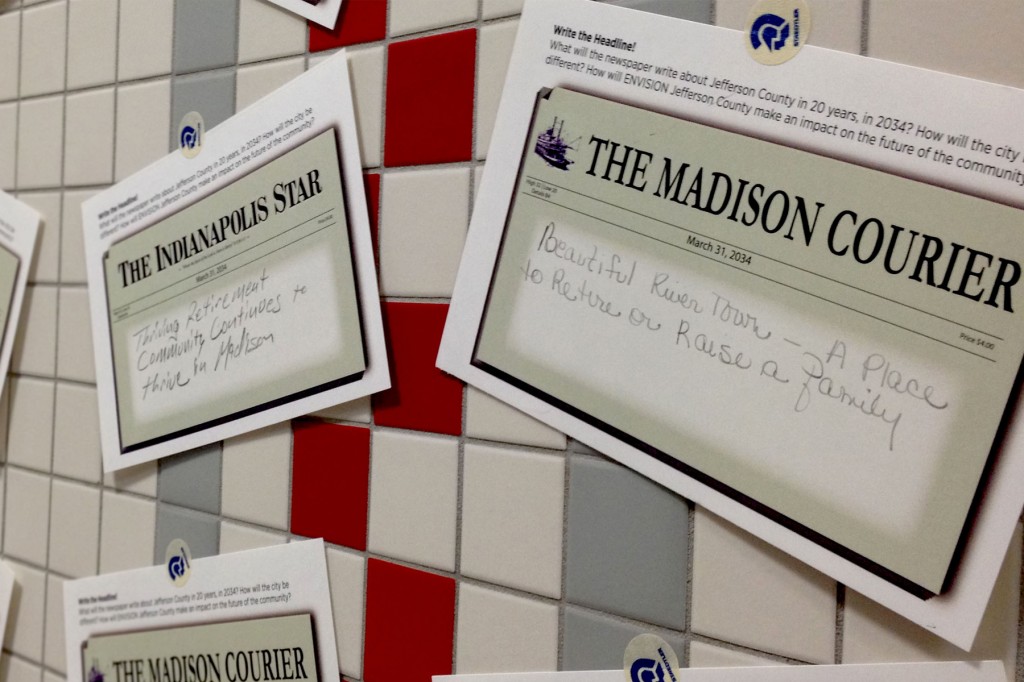 Write the Headline!
What will the newspaper write about Jefferson County in 20 years, in 2034? How will the city be
different? How will ENVISION Jefferson County make an impact on the future of the community?
THE INDIANAPOLIS STAR
March 31, 2034
Thriving Retirement
Community Continues to
thrive in Madison
Write the Headline!
What will the newspaper write about Jefferson County in 20 years, in 2034? How will the city
different? How will ENVISION Jefferson County make an impact on the future of the community
THE MADISON COURIER
March 31, 2034
Price $4.00
Beautiful River Town – A Place
to Retire or Raise a Family
Write the Headline!
What will the newspaper write about Jefferson County in 20 years, in 2034? How will the city be
different? How will ENVISION Jefferson County make an impact on the future of the community?
THE MADISON COURIER